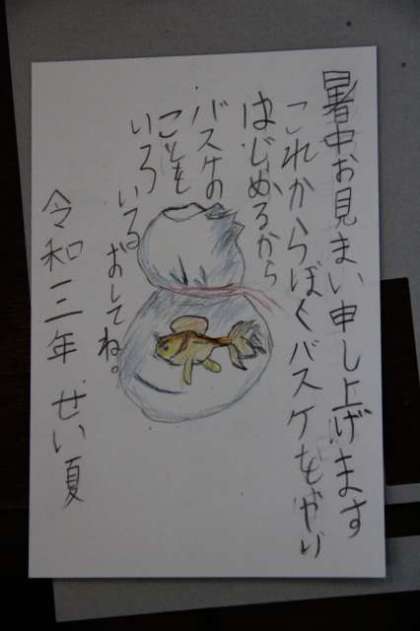 暑中お見まい申し上げます
これからぼくバスケをやり
はじめるから
バスケの
ことを
いろいろ
おしてね。
令和三年 せい夏